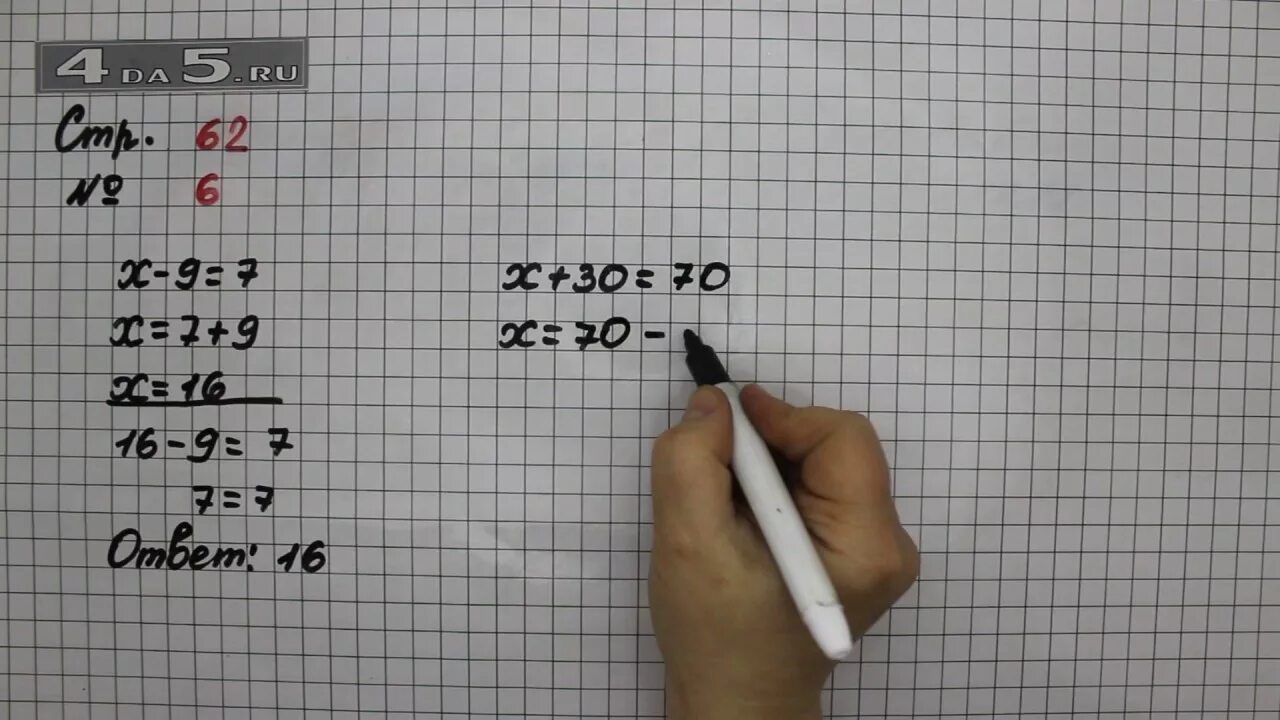 4DA5.RU
Стр. 62
№ 6
x-9=7
x=7+9
x=16
16-9=7
7=7
Ответ: 16
x+30=70
x=70-